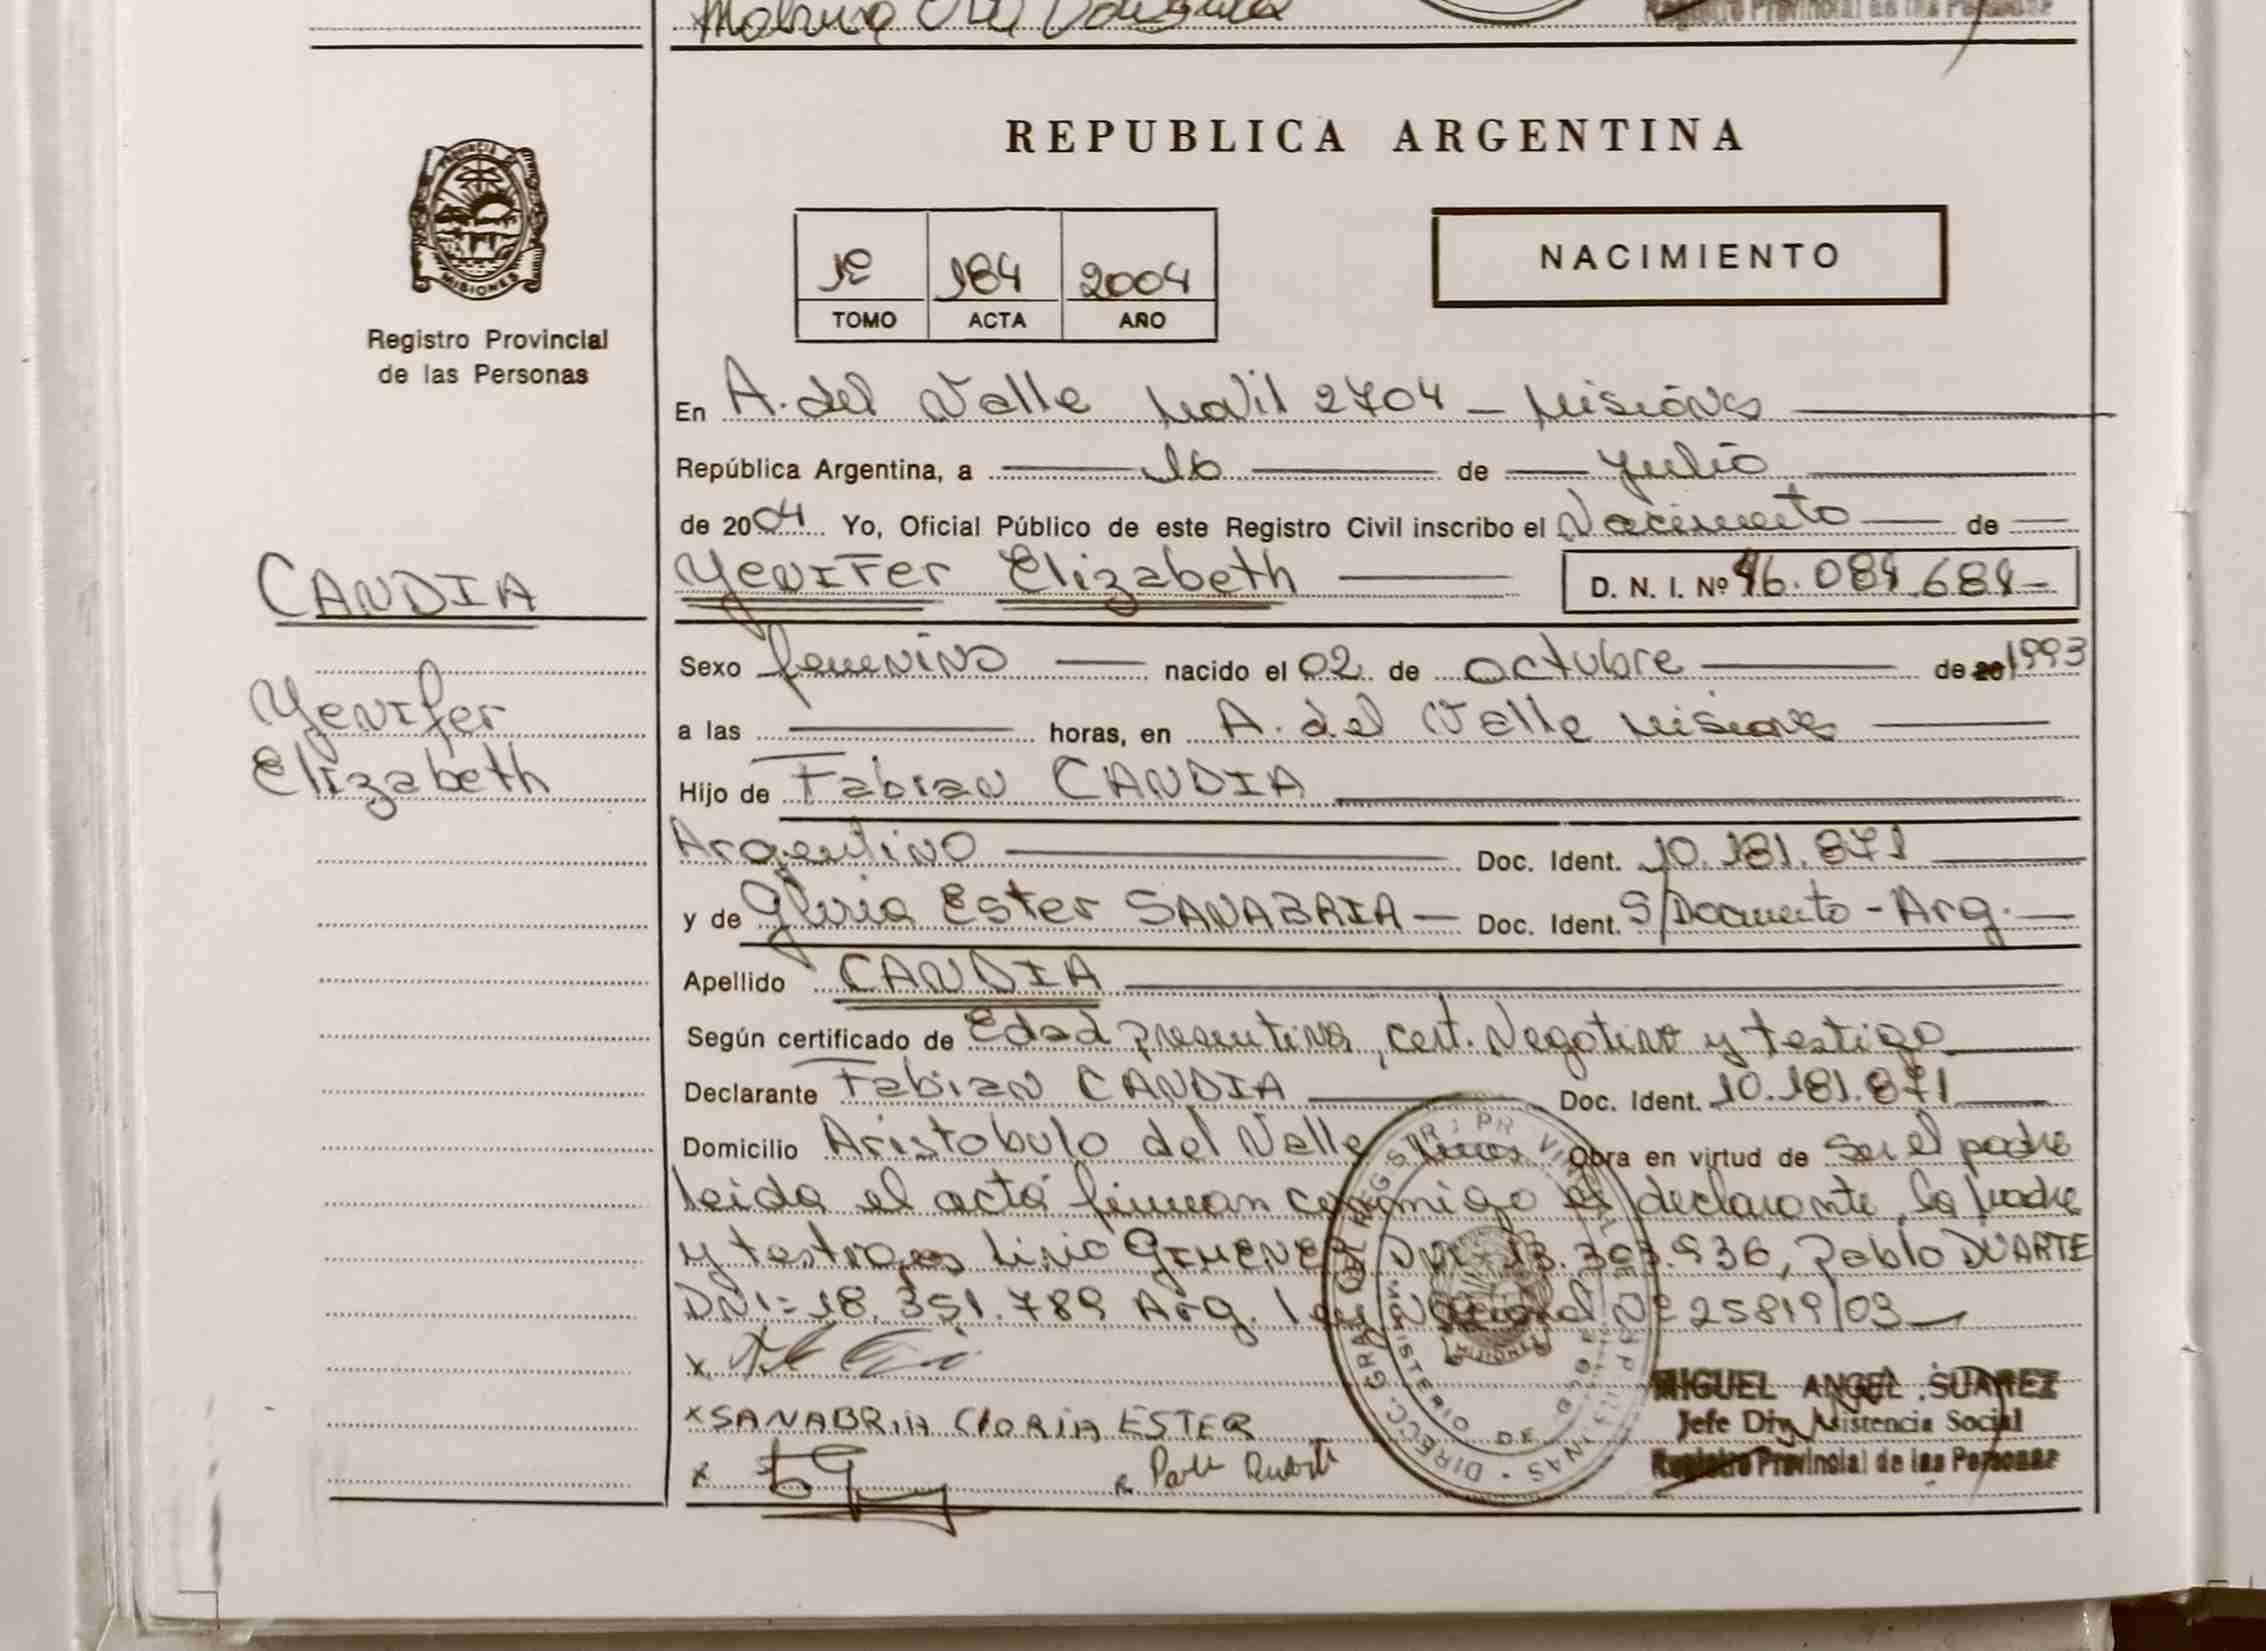 Registro Provincial de las Personas
PROVINCIA DE
MISIONES
Registro Provincial
de las Personas
REPUBLICA ARGENTINA
1º 184 2004
TOMO ACTA AÑO
NACIMIENTO
En A. del Valle 2704 - Misiónes
República Argentina, a 16 de Julio
de 2004 Yo, Oficial Público de este Registro Civil inscribo el Nacimiento de
CANDIA
Yenifer
Elizabeth
YeniFer Elizabeth D. N. I. Nº 46.084.684-
Sexo femenino nacido el 02 de octubre de 20 1993
a las horas, en A. del Valle Misiones
Hijo de Fabian CANDIA
Argentino Doc. Ident. 10.181.871
y de Gloria Ester SANABRIA - Doc. Ident. S/Documento - Arg.
Apellido CANDIA
Según certificado de Edad presuntiva, cert. Negativo y testigo
Declarante Fabian CANDIA Doc. Ident. 10.181.871
Domicilio Aristobulo del Valle Obra en virtud de ser el padre
leida el acta firman conmigo el declarante, la madre
y testigos Livio GIMENEZ DNI 13.393.936, Pablo DUARTE
DNI= 18.351.789 Arg. Ley Nacional Nº 25819/03
x
x SANABRIA GLORIA ESTER
x
MIGUEL ANGEL SUAREZ
Jefe Div. Asistencia Social
Registro Provincial de las Personas
MISIONES